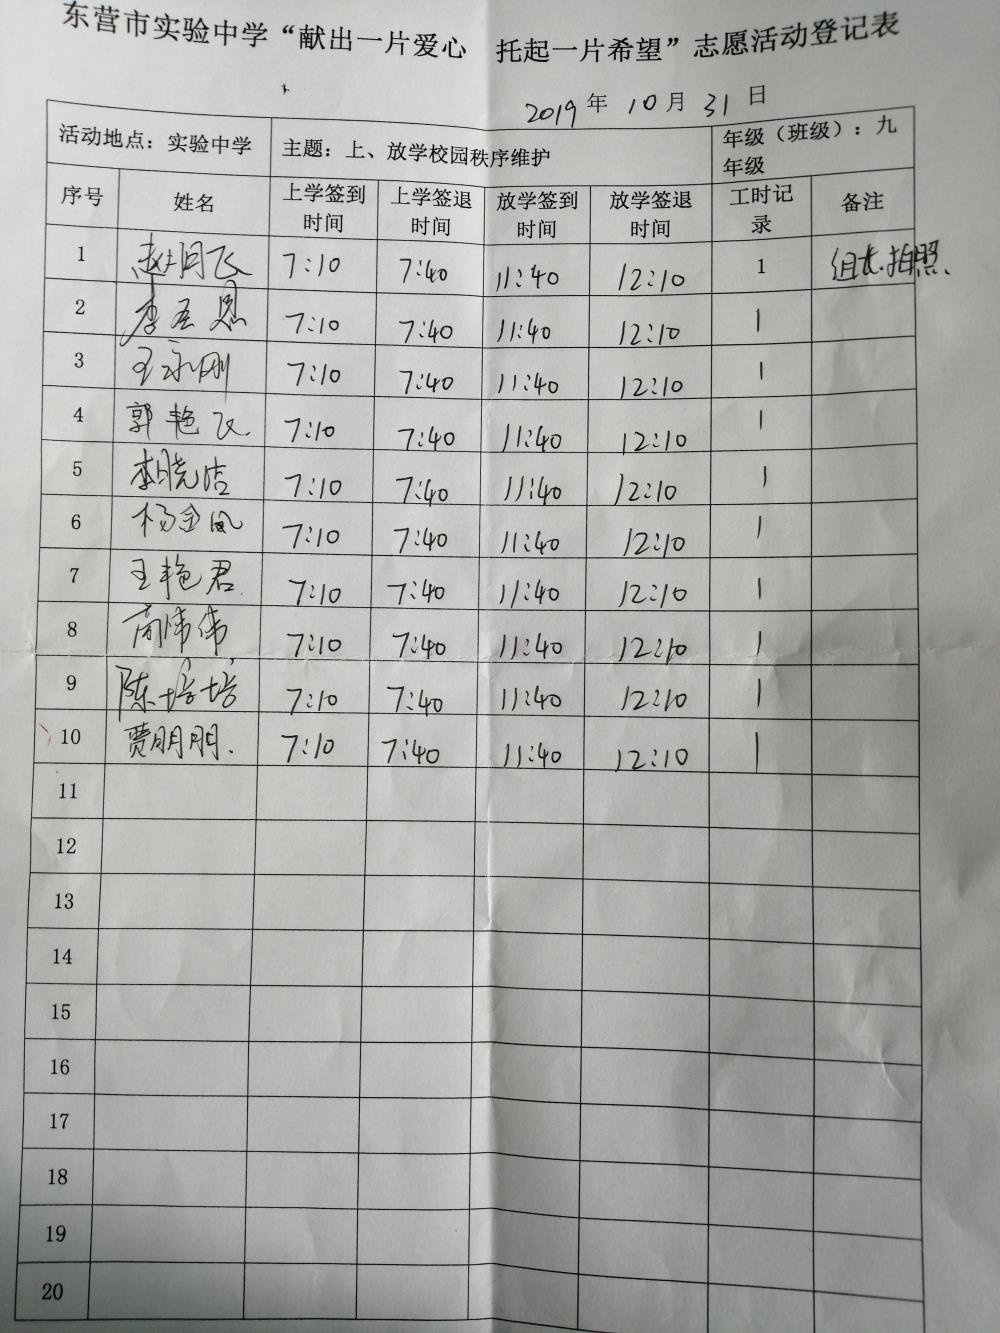 东营市实验中学“献出一片爱心 托起一片希望”志愿活动登记表
2019年10月31日
活动地点：实验中学 主题：上、放学校园秩序维护 年级（班级）：九年级
序号 姓名 上学签到时间 上学签退时间 放学签到时间 放学签退时间 工时记录 备注
1 7:10 7:40 11:40 12:10 1 组长.拍照.
2 7:10 7:40 11:40 12:10 1
3 王永刚 7:10 7:40 11:40 12:10 1
4 郭艳飞 7:10 7:40 11:40 12:10 1
5 李晓洁 7:10 7:40 11:40 12:10 1
6 杨金凤 7:10 7:40 11:40 12:10 1
7 王艳君 7:10 7:40 11:40 12:10 1
8 7:10 7:40 11:40 12:10 1
9 陈培培 7:10 7:40 11:40 12:10 1
10 贾朋朋. 7:10 7:40 11:40 12:10 1
11
12
13
14
15
16
17
18
19
20